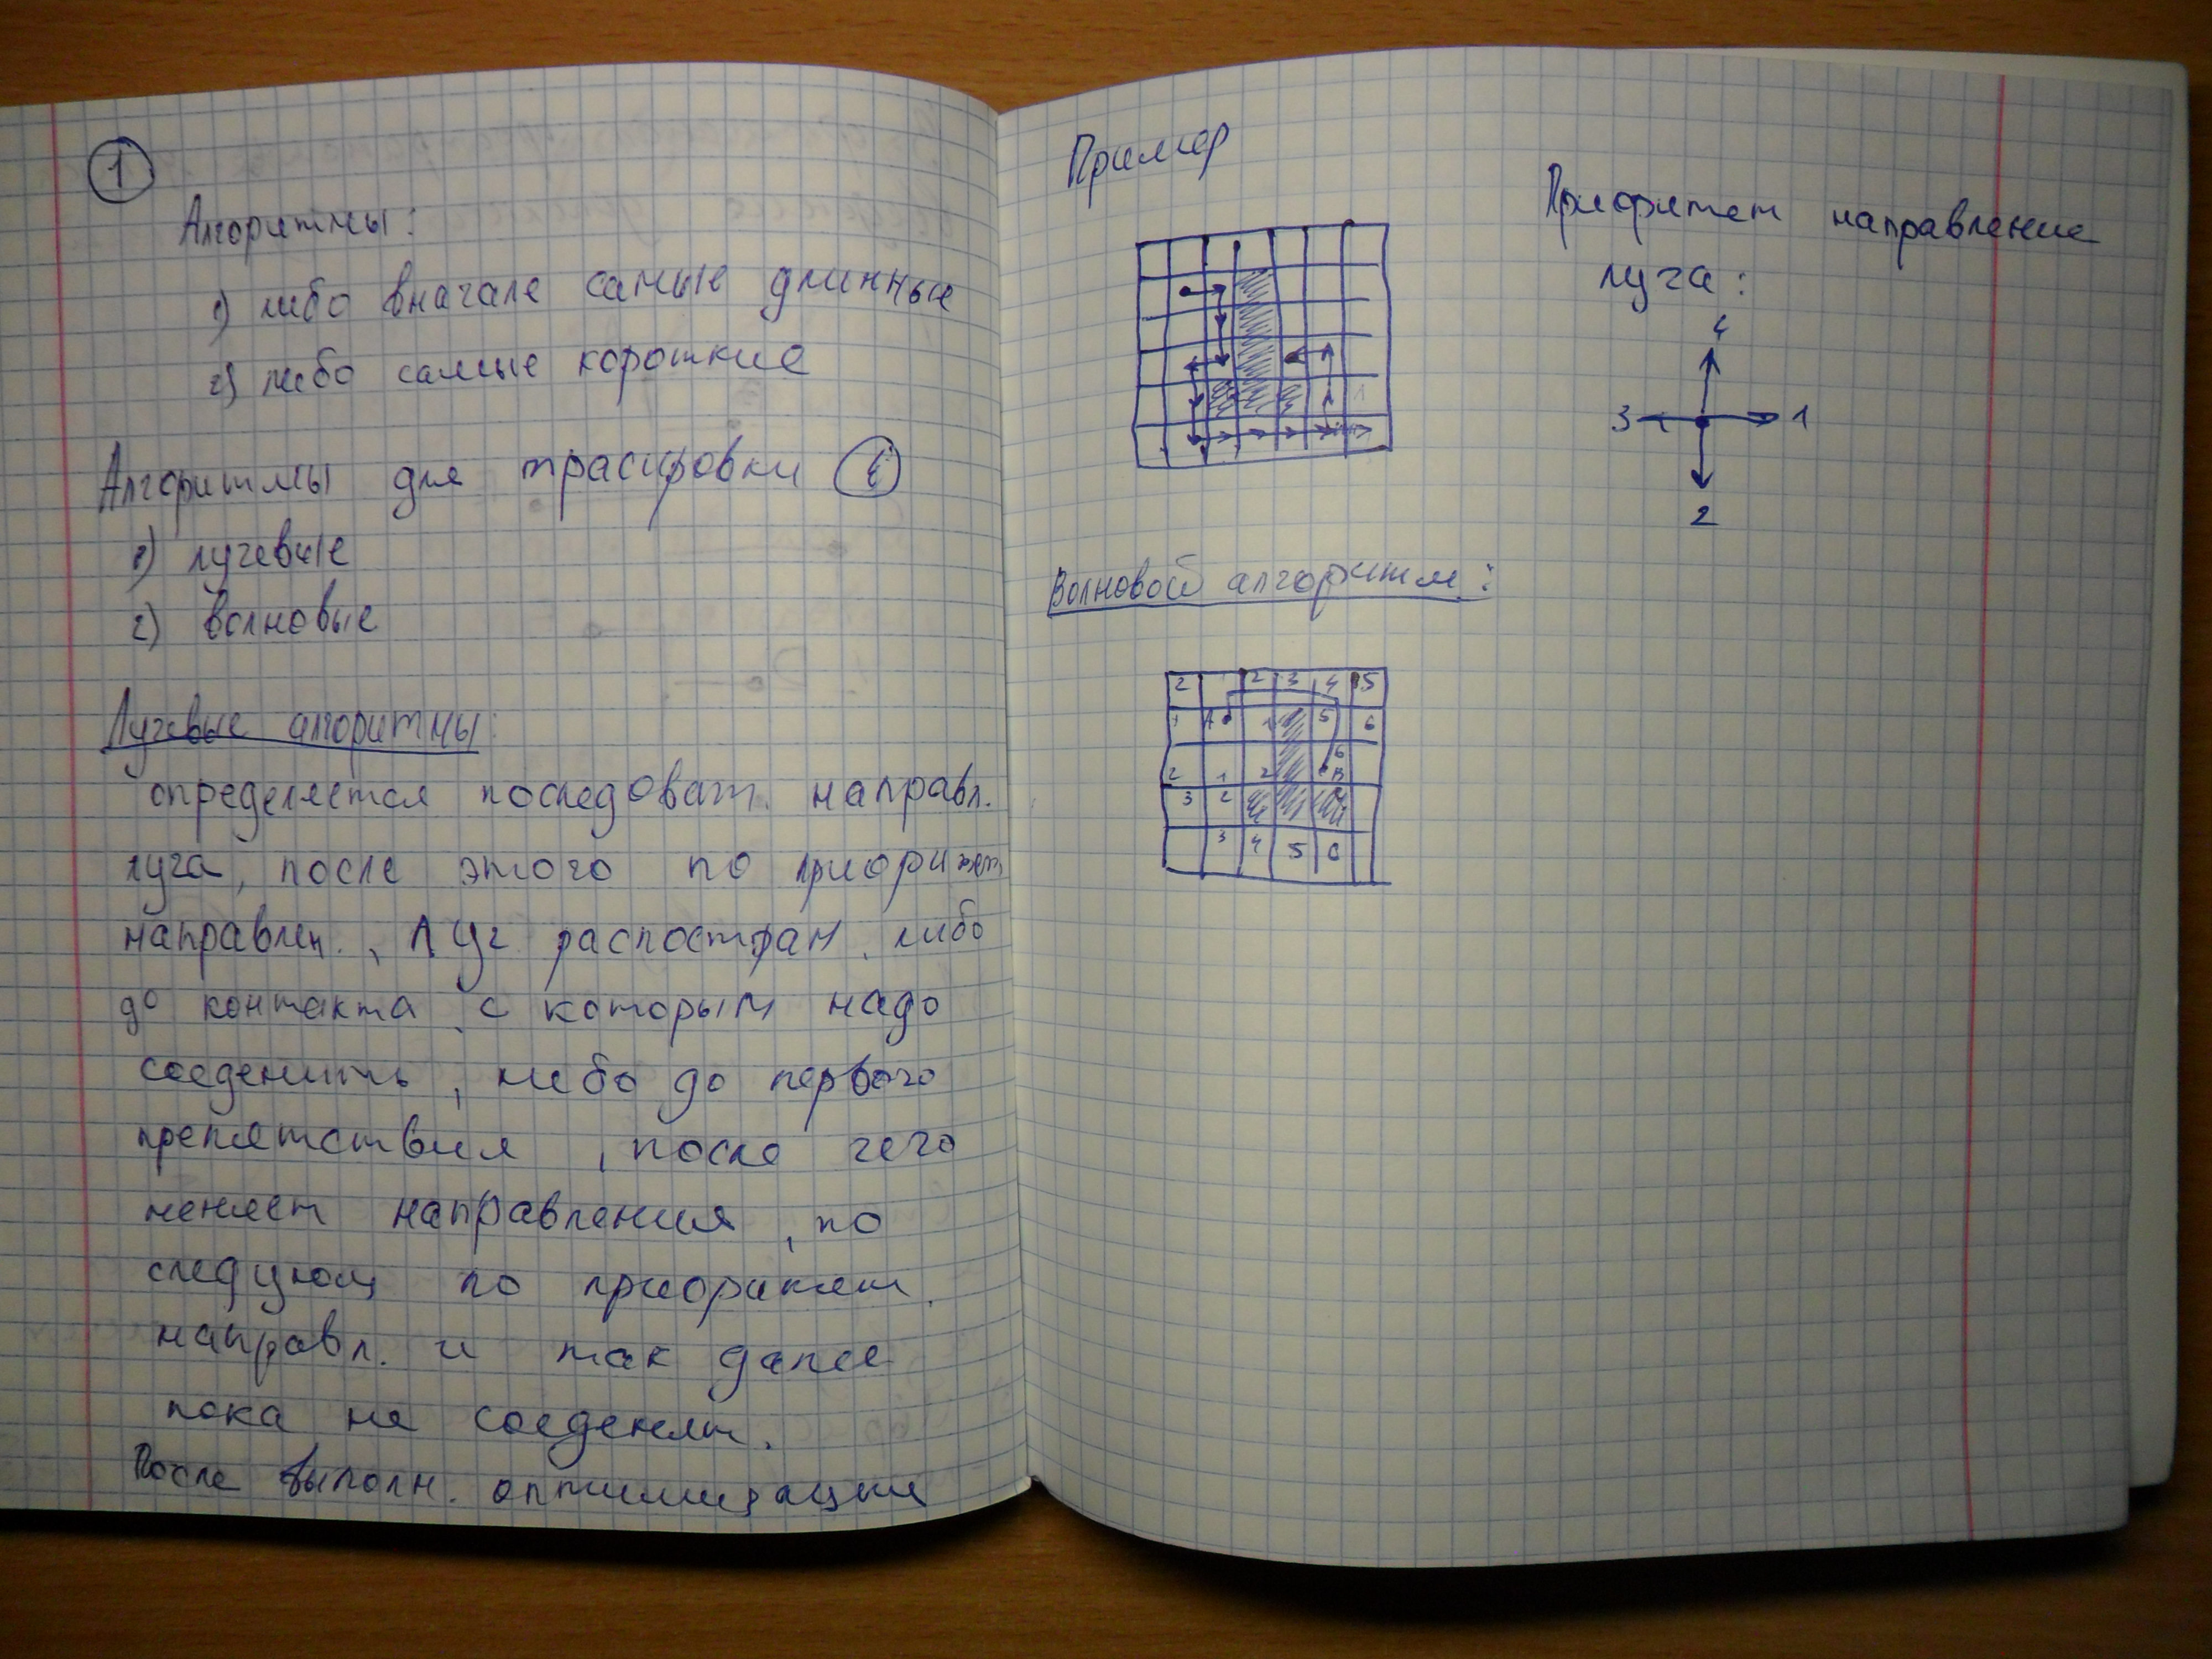 1
Алгоритмы:
1) либо вначале самые длинные
2) либо самые короткие
Алгоритмы для трасировки
1) лучевые
2) волновые
Лучевые алгоритмы:
определяется последоват. направл.
луча, после этого по приоритет.
направлен., луч распостран. либо
до контакта с которым надо
соеденить, либо до первого
препятствия, после чего
меняет направления, по
следующ по приоритет.
направл. и так далее
пока не соеденят.
После выполн. оптимизация
Пример
Приоритет направление
луча:
4
3 1
2
Волновой алгоритм:
2 2 3 4 5
1 A 1 5 6
6
2 1 2 B
3 2
3 4 5 6